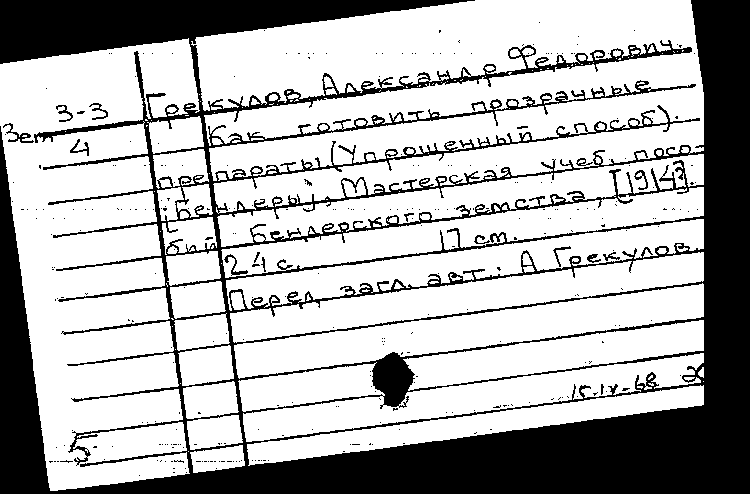 Грекулов, Александр Федорович.
Зет 3-3
4
Как готовить прозрачные
препараты (Упрощенный способ).
[Бендеры], Мастерская учеб. посо-
бий Бендерского земства, [1914].
24 с. 17 см.
Перед загл. авт.: А Грекулов.
15-IX-68
5